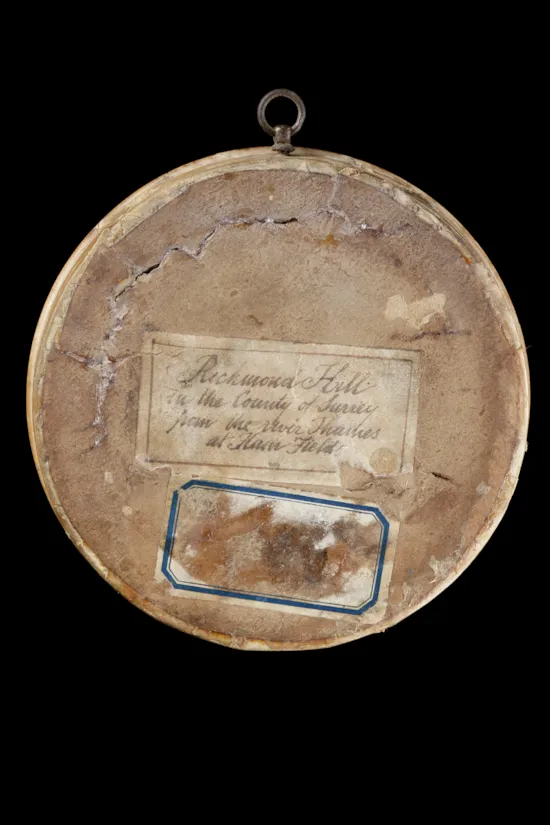 Richmond Hill
in the County of Surrey
from the river Thames
at Ham Fields